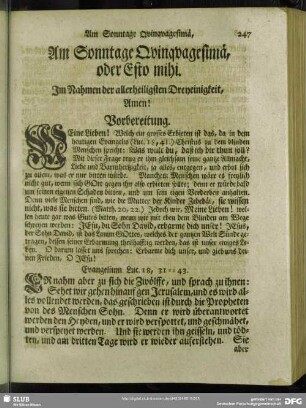 Am Sonntage Qvinqvagesimä, 247
Am Sonntage Qvinqvagesimä,
oder Esto mihi.
Im Nahmen der allerheiligsten Dreyeinigkeit,
Amen!
Vorbereitung.
Meine Lieben! Welch ein grosses Erbieten ist das, da in dem
heutigen Evangelio (Luc. 18, 41.) Christus zu dem blinden
Menschen spricht: Was wilt du, daß ich dir thun soll?
Mit dieser Frage trug er ihm gleichsam seine gantze Allmacht,
Liebe und Barmhertzigkeit, ja alles, entgegen, und erbot sich
zu allem, was er nur bitten würde. Manchem Menschen wäre es freylich
nicht gut, wenn sich GOtt gegen ihn also erbieten wolte; denn er würde bald
um seinen eigenen Schaden bitten, und um sein eigen Verderben anhalten.
Denn viele Menschen sind, wie die Mutter der Kinder Zebedäi, sie wissen
nicht, was sie bitten. (Matth. 20, 22.) Jedoch wir, Meine Lieben! wol-
len heute gar was Gutes bitten, wenn wir mit eben dem Blinden am Wege
schreyen werden: JEsu, du Sohn David, erbarme dich unser! JEsus,
der Sohn David, ist das Lamm GOttes, welches der gantzen Welt Sünde ge-
tragen, dessen seiner Erbarmung theilhafftig werden, das ist unser ewiges Le-
ben. O darum lasset uns sprechen: Erbarme dich unser, und gieb uns dei-
nen Frieden, O JEsu!
Evangelium Luc. 18, 31-43.
ER nahm aber zu sich die Zwölffe, und sprach zu ihnen:
Sehet wir gehen hinauf gen Jerusalem, und es wird al-
les vollendet werden, das geschrieben ist durch die Propheten
von des Menschen Sohn. Denn er wird überantwortet
werden den Heyden, und er wird verspottet, und geschmähet,
und verspeyet werden. Und sie werden ihn geisseln, und töd-
ten, und am dritten Tage wird er wieder auferstehen. Sie
aber
SLUB
DFG